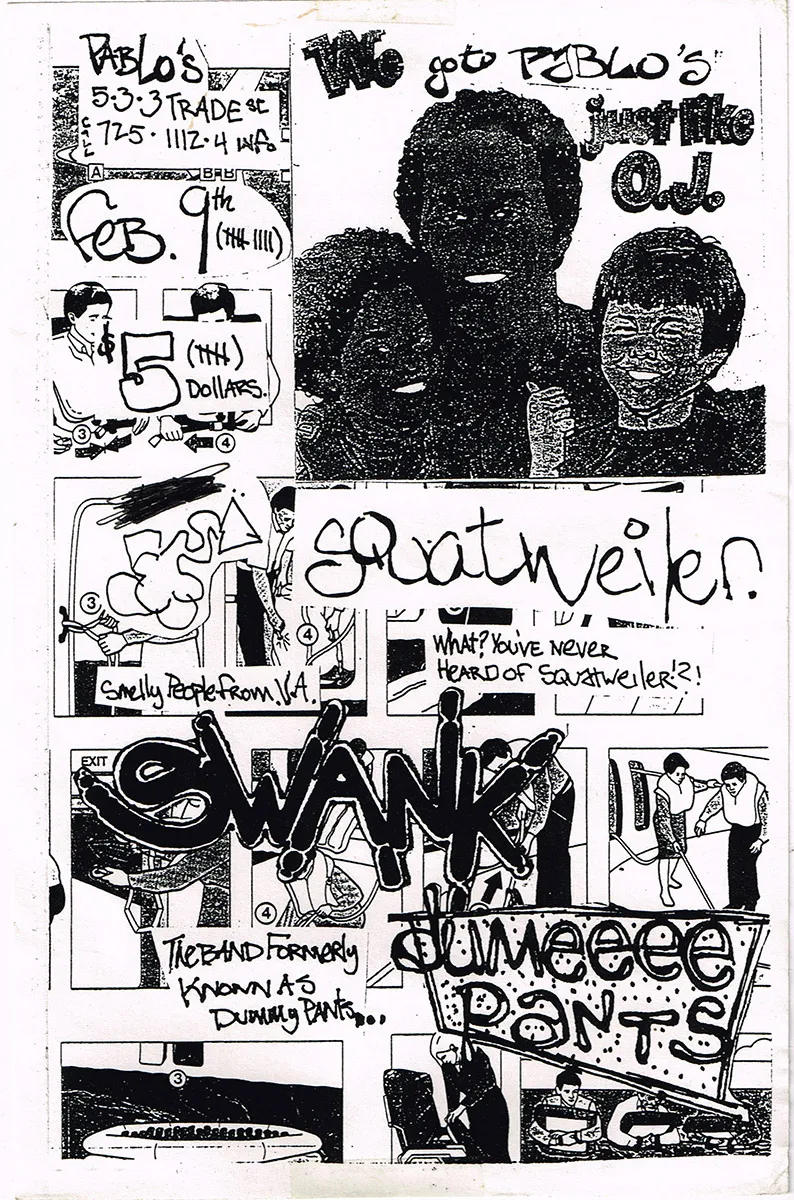 PABLO's
5·3·3 TRADE St
CALL 725·1112·4 info
A
B-B
FeB. 9th
(卌 IIII)
$5 (卌)
DOLLARS.
3
4
We go to PABLO's
just like
O.J.
squatweiler.
3
4
WHAT? YOU'VE NEVER
HEARD OF SQUATWEILER!?!
Smelly People from V.A.
SWANK
EXIT
4
THE BAND FORMERLY
KNOWN AS
DUMMY PANTS...
dumeeee
PANTS
3